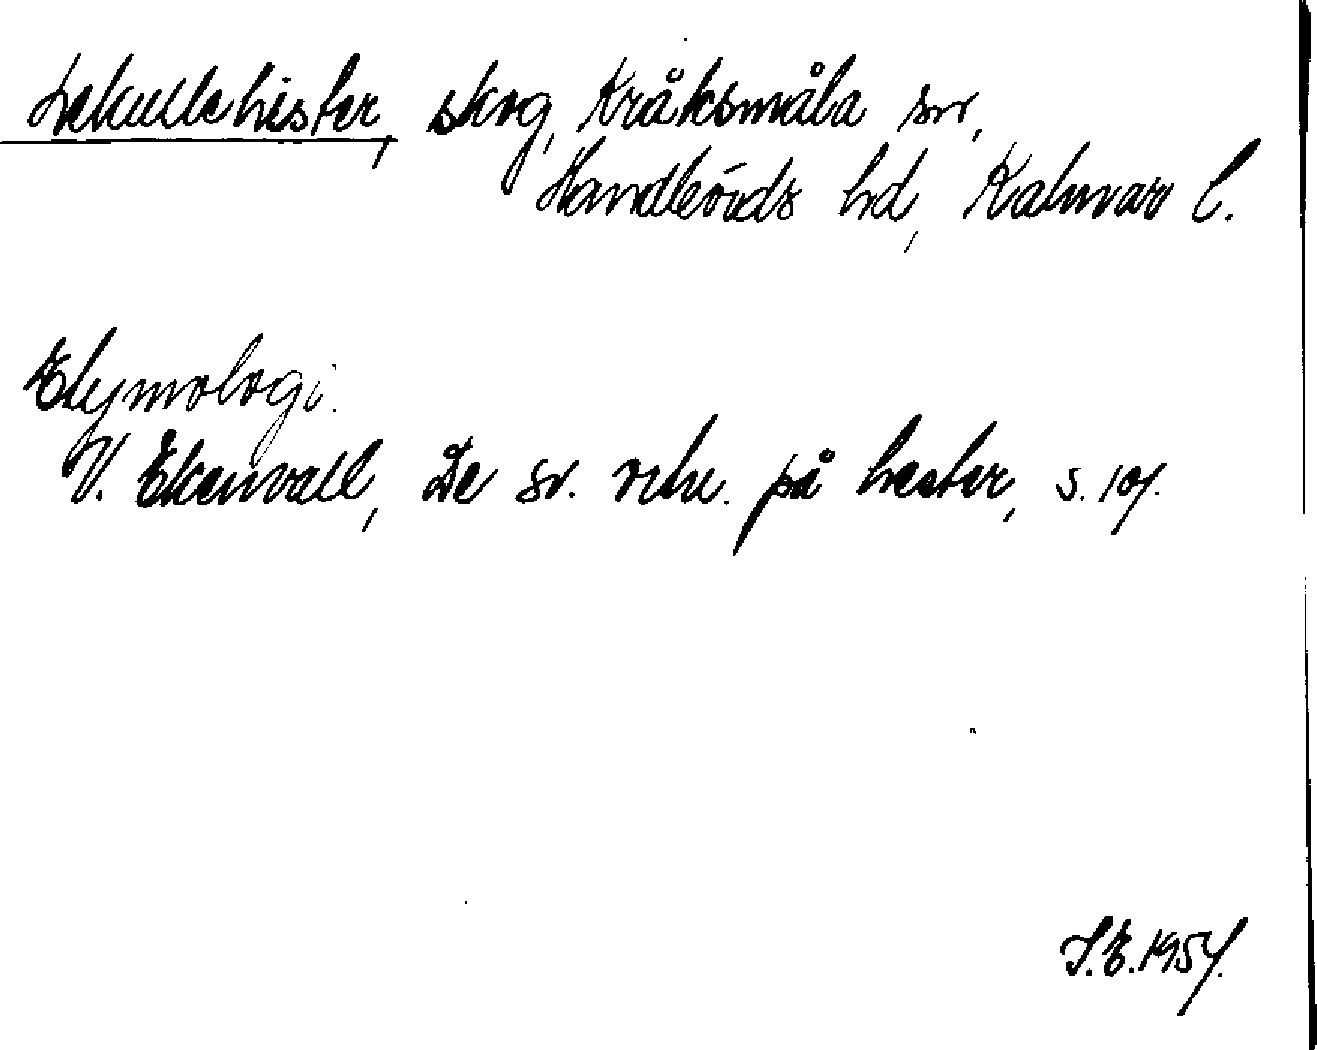 Lekullehister, skog, Kråksmåla sn,
Handbörds hd, Kalmar l.
Etymologi.
V. Ekenvall, De sv. ortn. på hester, s. 101.
S.E. 1957.